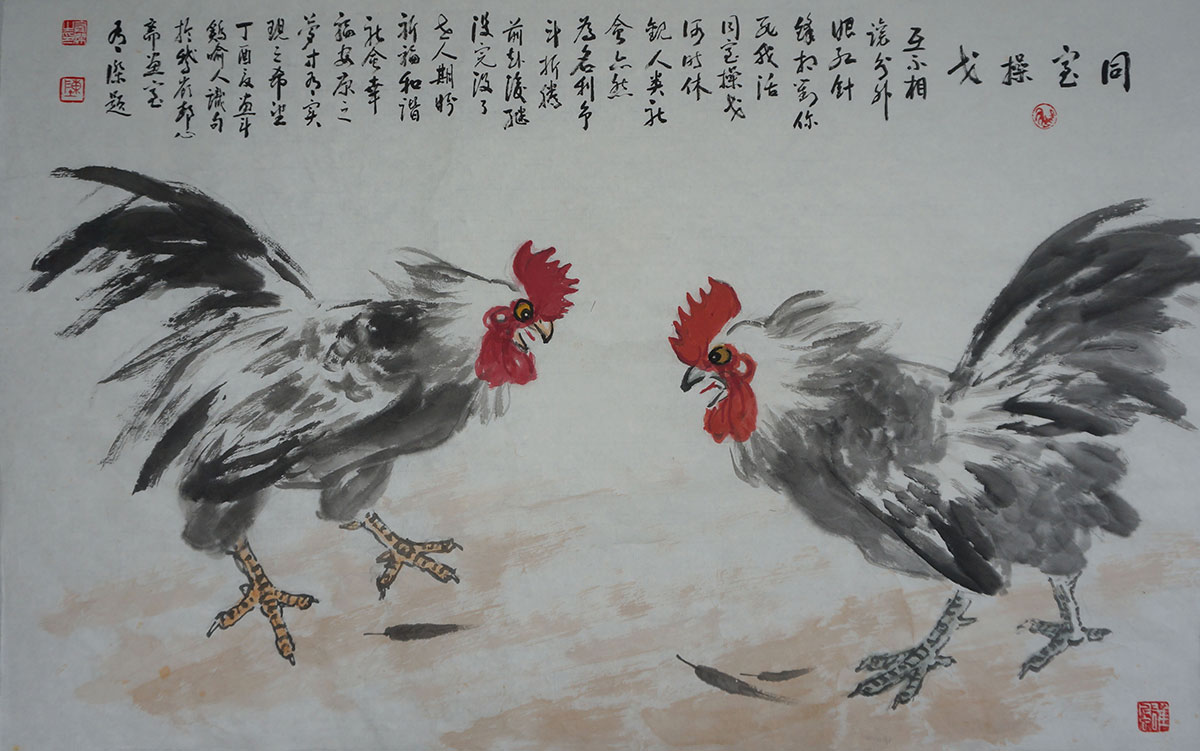 同室操戈
互不相
让分外
眼红针
锋相对你
死我活
同室操戈
何时休
观人类社
会亦然
為名利争
斗折腾
前赴後继
没完没了
老人期盼
祈福和谐
社会幸
福安康之
梦寸为实
现之希望
丁酉夏画斗
鸡喻人识句
於
斋画室
题